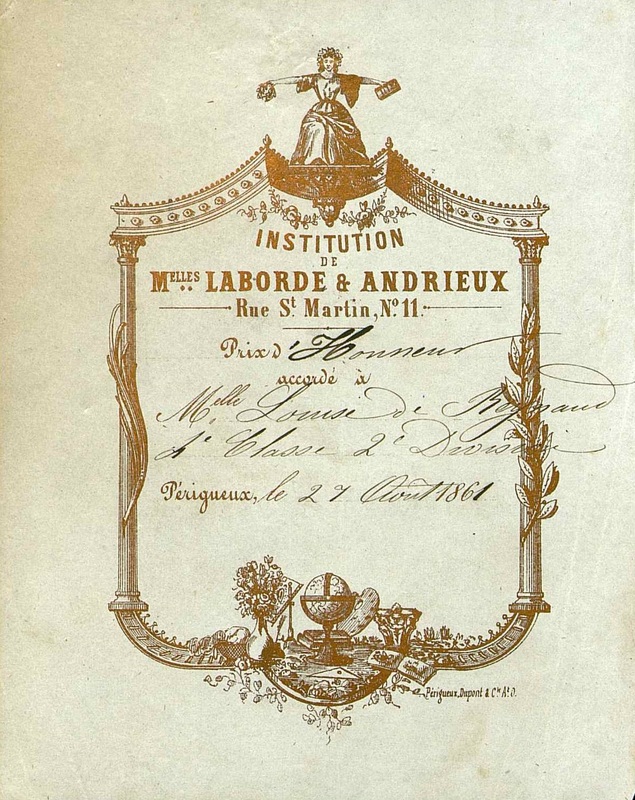 INSTITUTION
DE
Melles LABORDE & ANDRIEUX
Rue St Martin, No. 11.
Prix d'Honneur
accordé à
Melle Louise de
4e Classe 2e Division
Périgueux, le 27 Août 1861
Périgueux, Dupont & Cie